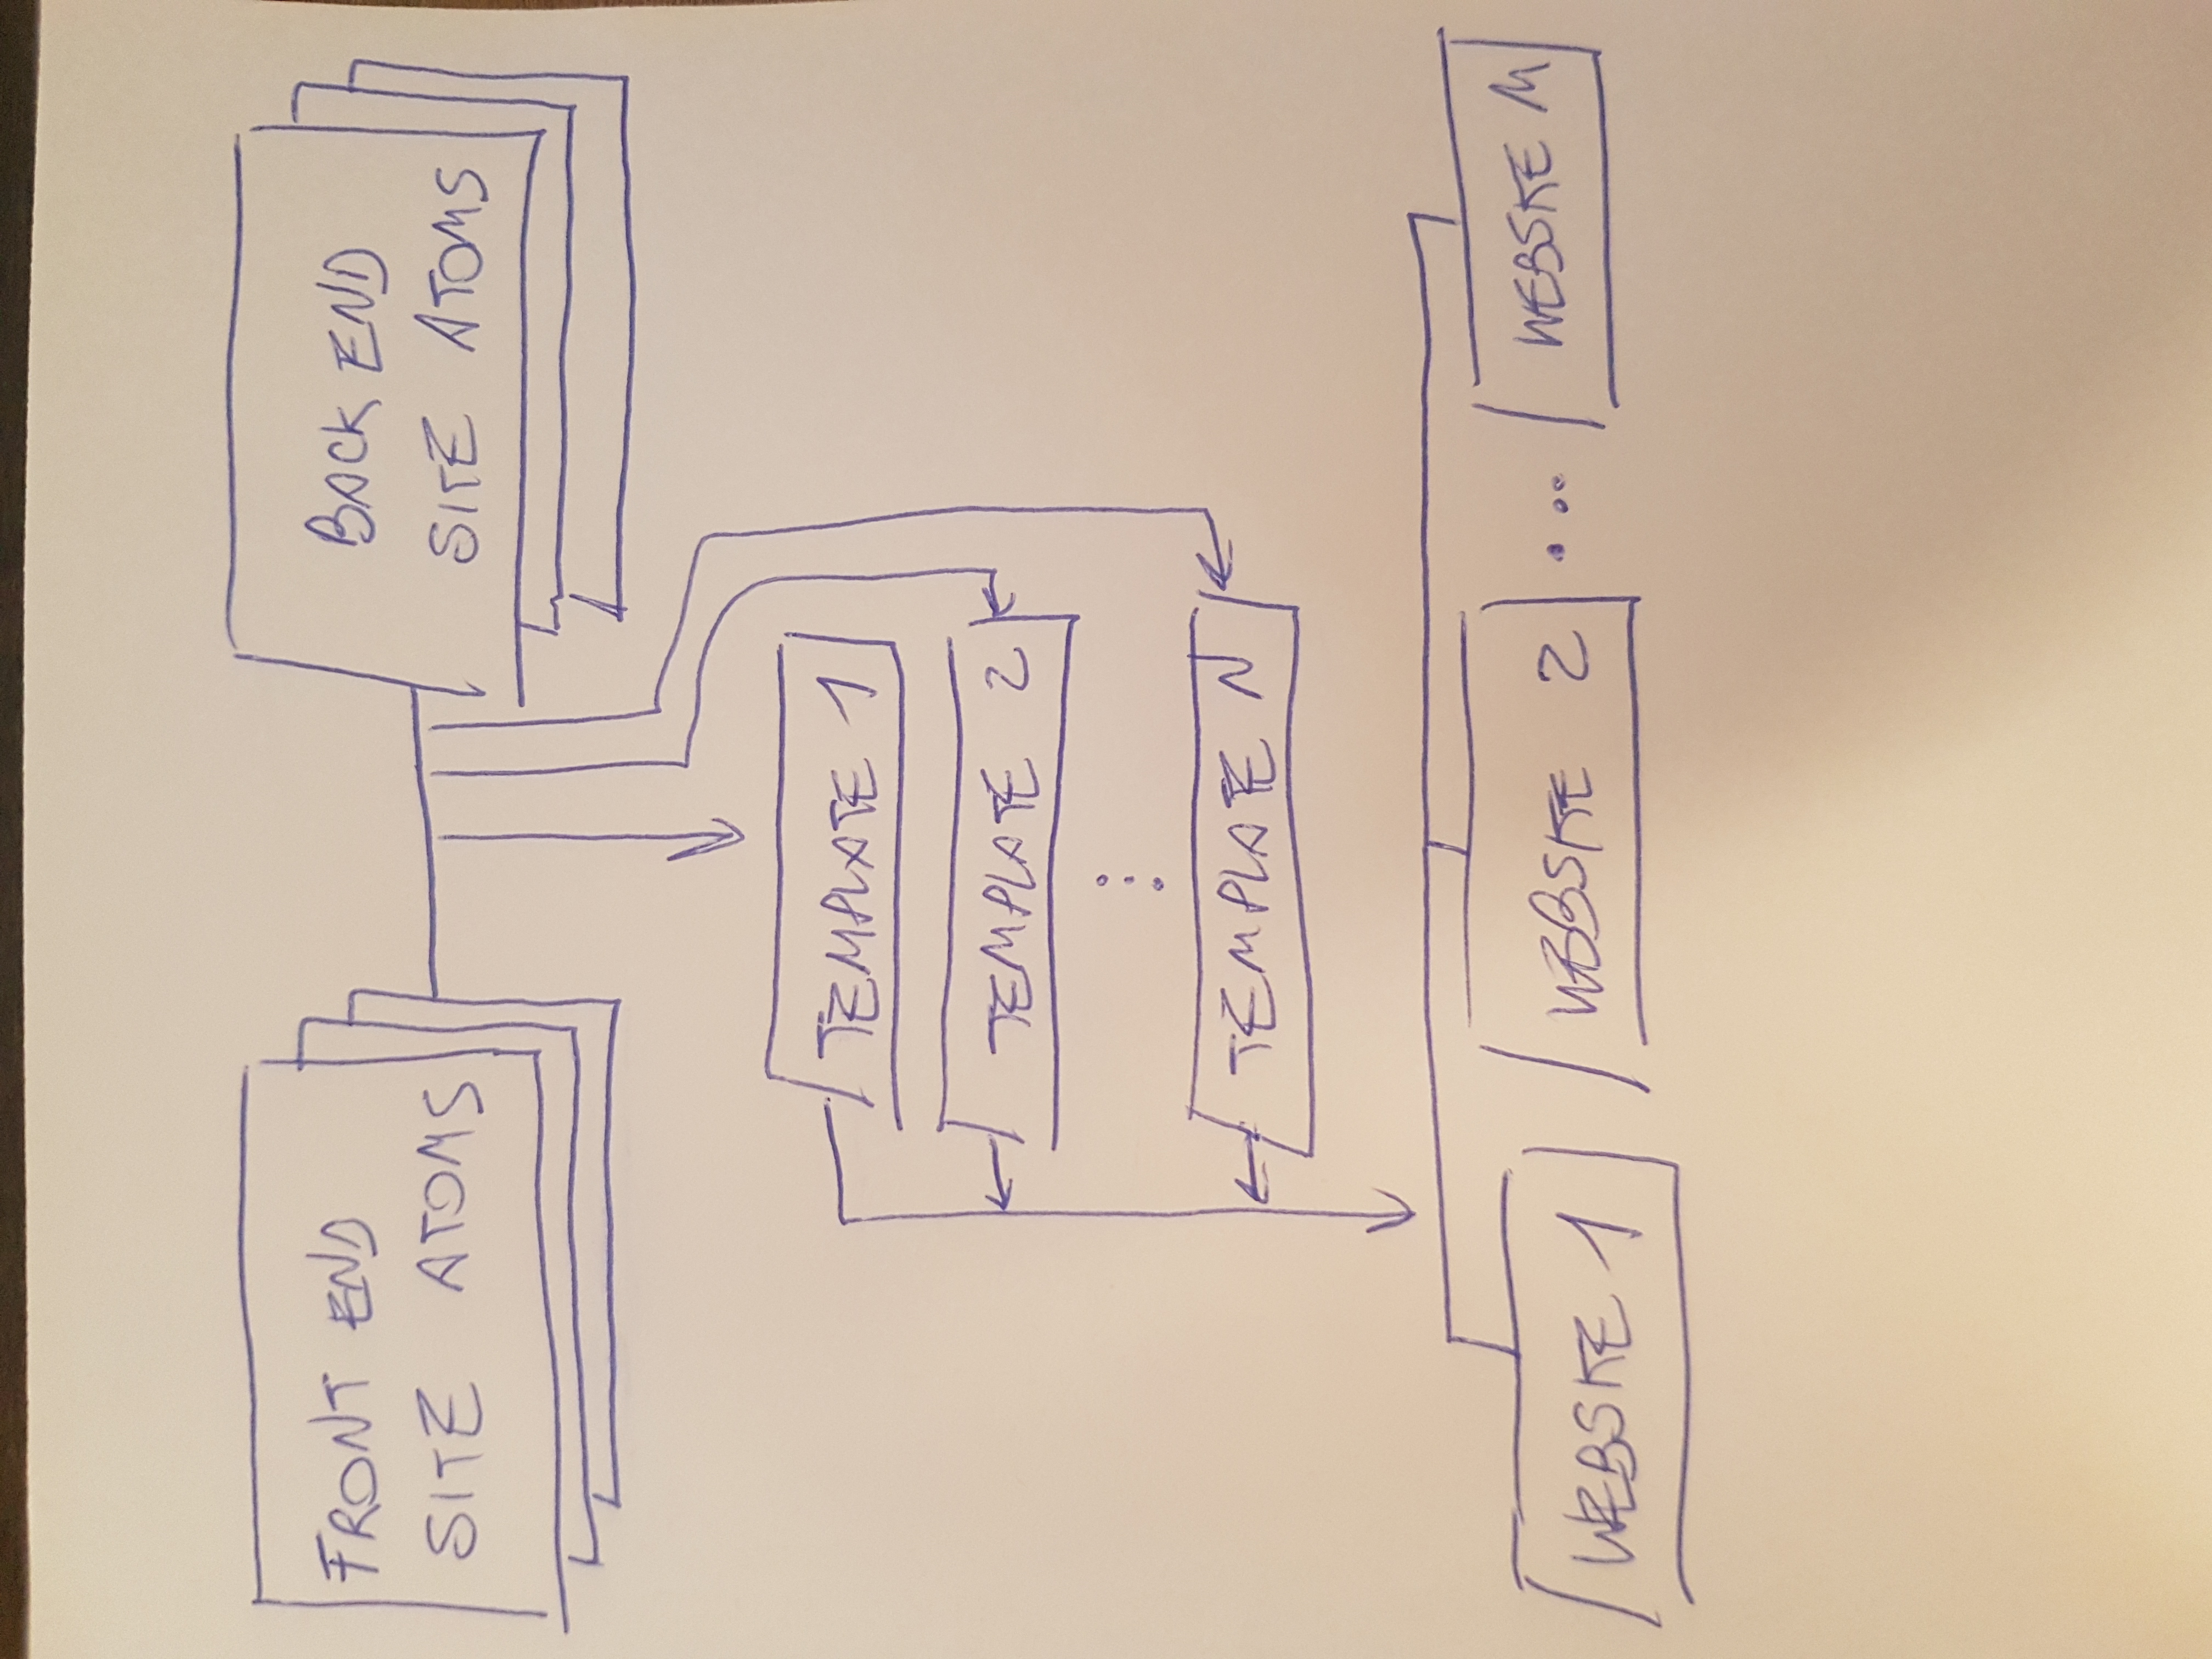 FRONT END
SITE ATOMS
BACK END
SITE ATOMS
TEMPLATE 1
TEMPLATE 2
TEMPLATE N
WEBSITE 1
WEBSITE 2
WEBSITE M